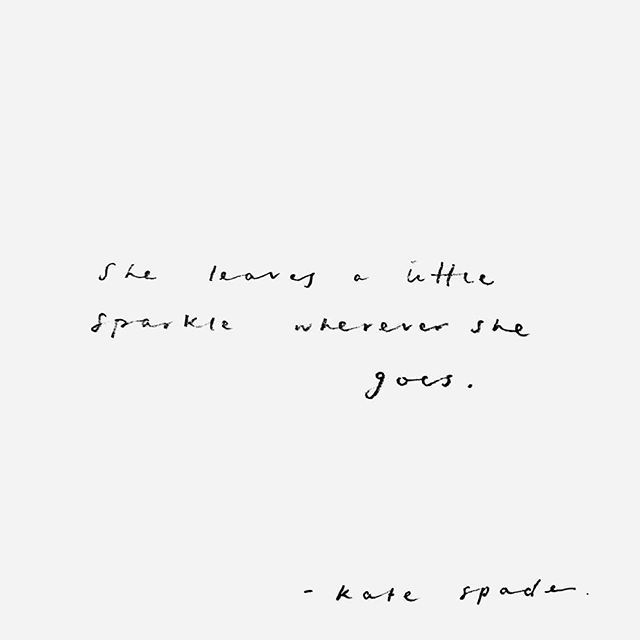 She leaves a little
sparkle wherever she
goes.
- kate spade.